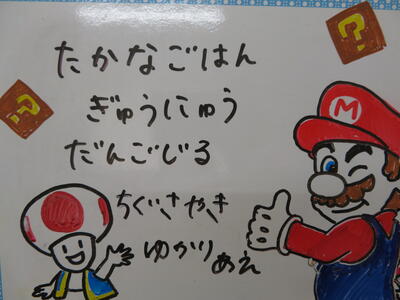 たかなごはん
ぎゅうにゅう
だんごじる
ちぐさやき
ゆかりあえ
M
?
?